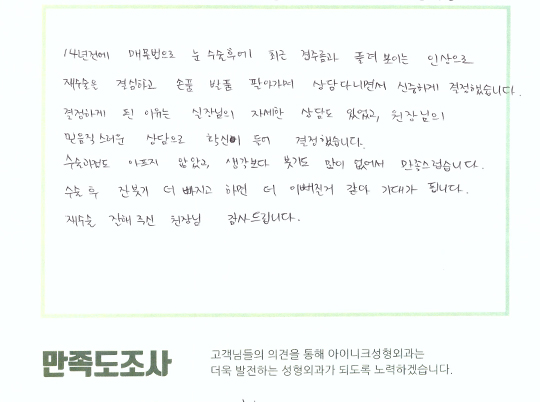 14년전에 매몰법으로 눈 수술후에 최근 점주름과 졸려 보이는 인상으로
재수술은 결심하고 손품 발품 팔아가며 상담다니면서 신중하게 결정했습니다.
결정하게 된 이유는 실장님의 자세한 상담도 있었고, 원장님의
믿음직스러운 상담으로 확신이 들어 결정했습니다.
수술과정도 아프지 않았고, 생각보다 붓기도 많이 없어서 만족스럽습니다.
수술 후 잔붓기 더 빠지고 하면 더 이뻐질거 같아 기대가 됩니다.
재수술 잔해 주신 원장님 감사드립니다.
만족도조사
고객님들의 의견을 통해 아이니크성형외과는
더욱 발전하는 성형외과가 되도록 노력하겠습니다.